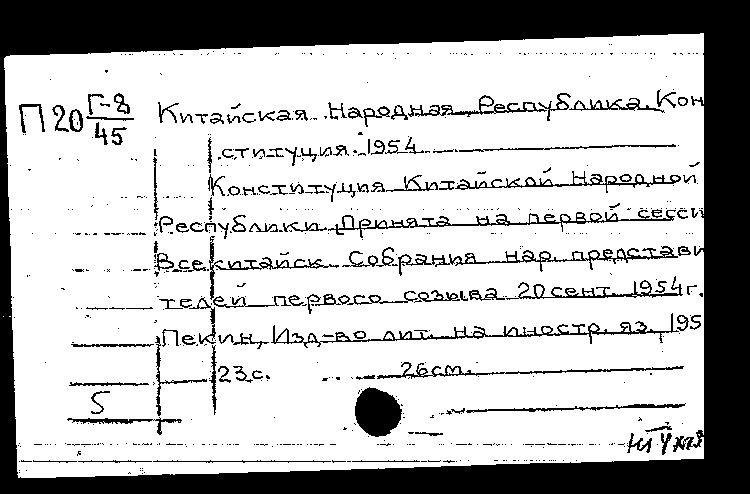 П20 Г-8/45
Китайская Народная Республика. Кон
ституция. 1954
Конституция Китайской Народной
Республики. Принята на первой сесси
Всекитайск. Собрания нар. представи
телей первого созыва 20 сент. 1954 г.
Пекин, Изд-во лит. на иностр. яз., 195
23 с. 26 см.
5